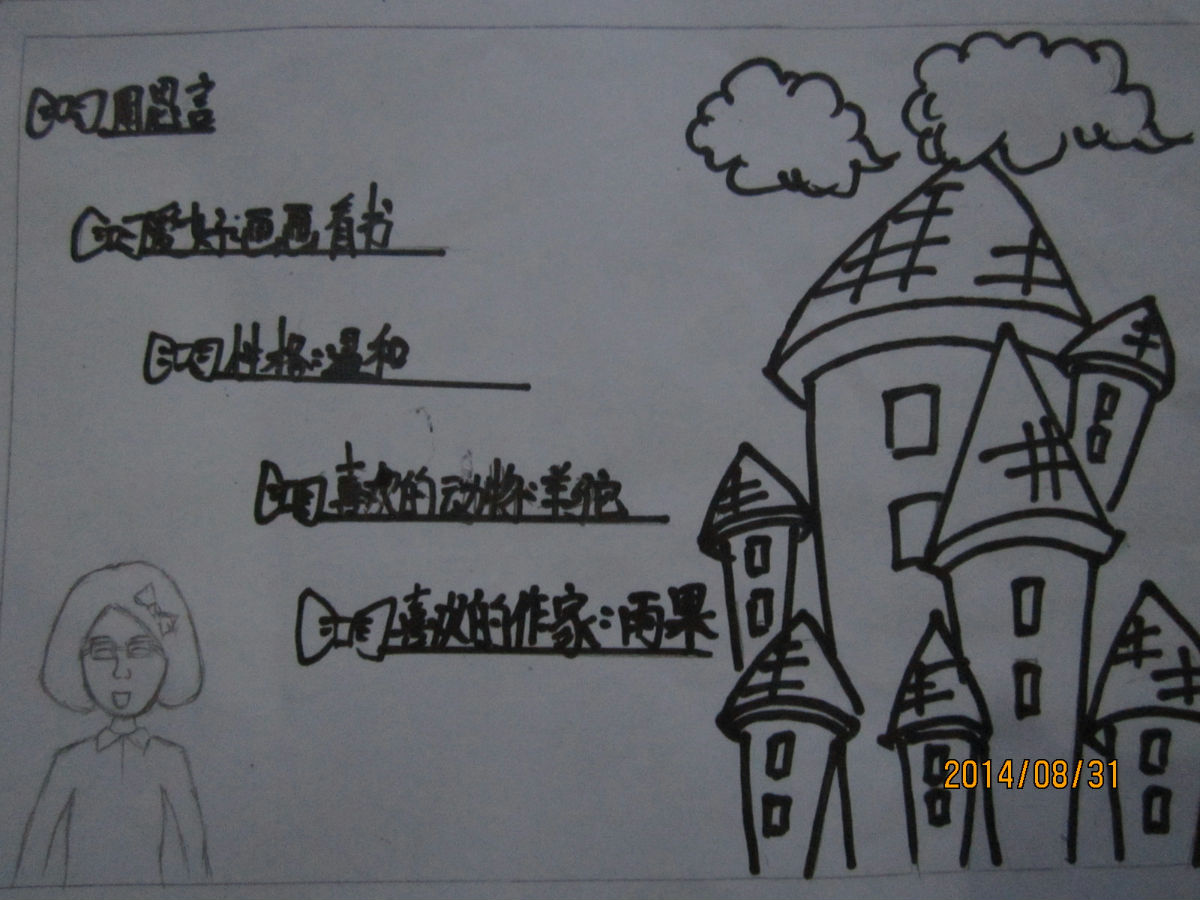 爱好:画画看书
性格:温和
喜欢的动物:羊驼
喜欢的作家:雨果
2014/08/31